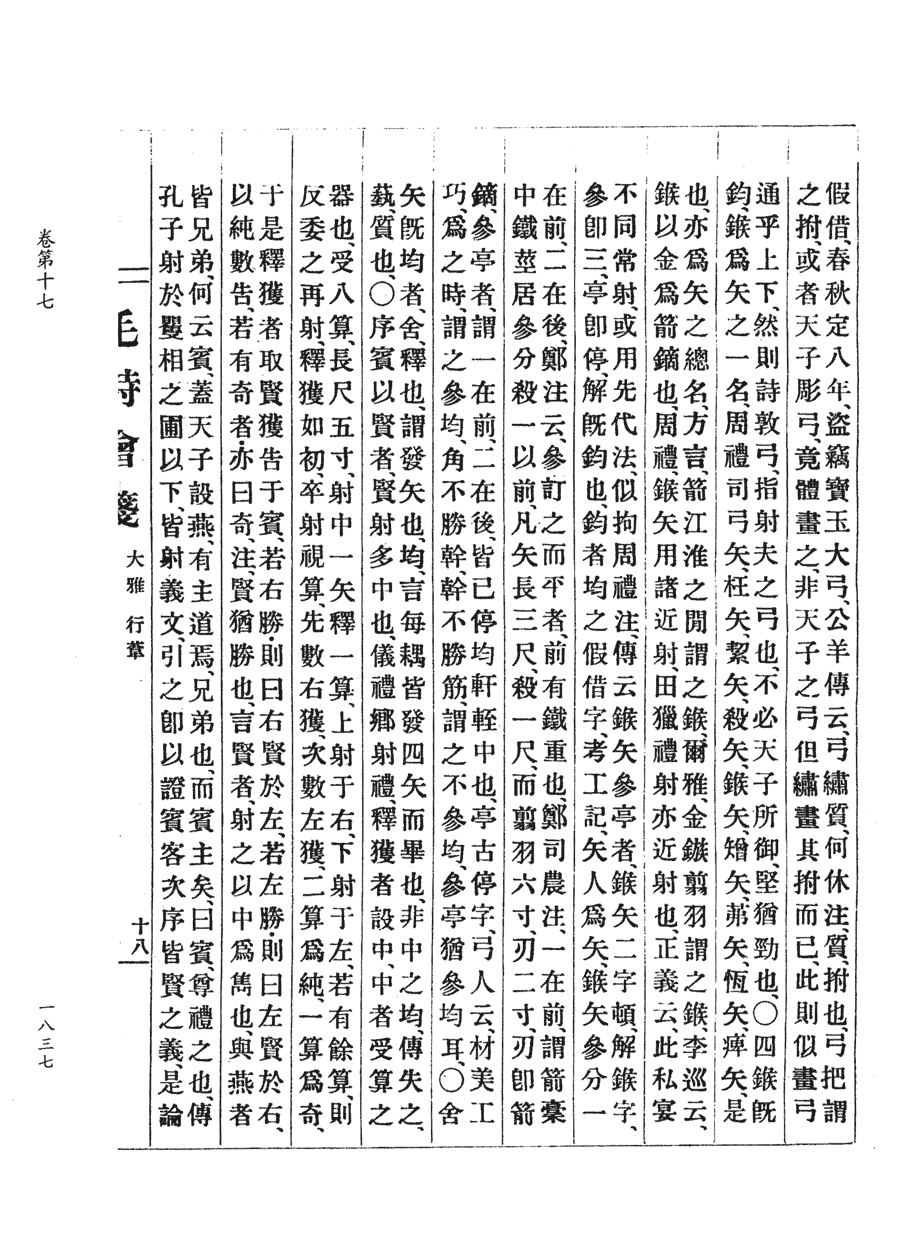 假借、春秋定八年、盜竊寶玉大弓、公羊傳云、弓繡質、何休注、質、拊也、弓把謂
之拊、或者天子彫弓、竟體畫之、非天子之弓但繡畫其拊而已、此則似畫弓
通乎上下、然則詩敦弓、指射夫之弓也、不必天子所御、堅猶勁也、〇四鍭既
鈞、鍭爲矢之一名、周禮司弓矢、枉矢、絜矢、殺矢、鍭矢、矰矢、茀矢、恆矢、痺矢、是
也、亦爲矢之總名、方言、箭江淮之閒謂之鍭、爾雅、金鏃翦羽謂之鍭、李巡云、
鍭以金爲箭鏑也、周禮、鍭矢用諸近射、田獵禮射亦近射也、正義云、此私宴
不同常射、或用先代法、似拘周禮注、傳云鍭矢參亭者、鍭矢二字頓、解鍭字、
參卽三、亭卽停、解既鈞也、鈞者均之假借字、考工記、矢人爲矢、鍭矢參分一
在前、二在後、鄭注云、參訂之而平者、前有鐵重也、鄭司農注、一在前、謂箭槀
中鐵莖居參分殺一以前、凡矢長三尺、殺一尺、而翦羽六寸、刃二寸、刃卽箭
鏑、參亭者、謂一在前、二在後、皆已停均軒輊中也、亭古停字、弓人云、材美工
巧、爲之時、謂之參均、角不勝幹、幹不勝筋、謂之不參均、參亭猶參均耳、〇舍
矢既均者、舍、釋也、謂發矢也、均、言每耦皆發四矢而畢也、非中之均、傳失之、
蓺、質也、〇序賓以賢者、賢射多中也、儀禮鄉射禮、釋獲者設中、中者受算之
器也、受八算、長尺五寸、射中一矢釋一算、上射于右、下射于左、若有餘算、則
反委之再射、釋獲如初、卒射視算、先數右獲、次數左獲、二算爲純、一算爲奇、
于是釋獲者取賢獲告于賓、若右勝、則曰右賢於左、若左勝、則曰左賢於右、
以純數告、若有奇者、亦曰奇、注、賢猶勝也、言賢者、射之以中爲雋也、與燕者
皆兄弟、何云賓、蓋天子設燕、有主道焉、兄弟也、而賓主矣、曰賓、尊禮之也、傳
孔子射於矍相之圃以下、皆射義文、引之卽以證賓客次序皆賢之義、是論
毛詩會箋 大雅 行葦 十八
卷第十七 一八三七